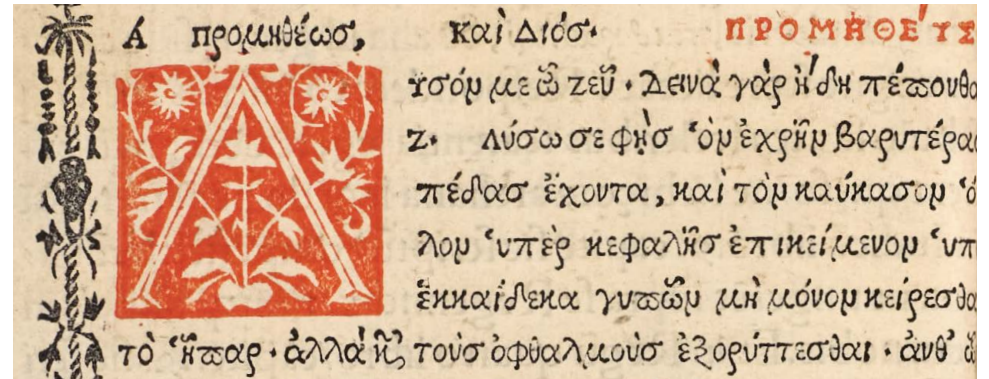 Α προμηθέωσ, καὶ Διόσ· ΠΡΟΜΗΘΕΎΣ
Λυσόμ με ὦ ζεῦ · Δεινὰ γὰρ ἤδη πέπονθα
Ζ· λύσω σε φὴσ ὃν ἐχρῆν βαρυτέρασ
πέδασ ἔχοντα, καὶ τὸν καύκασον ὅ
λον ὑπὲρ κεφαλῆσ ἐπικείμενον ὑπ
ἑκκαίδεκα γυπῶν μὴ μόνον κείρεσθα
τὸ ἧπαρ · ἀλλὰ καὶ τοὺσ ὀφθαλμοὺσ ἐξορύττεσθαι · ἀνθ' ὧ